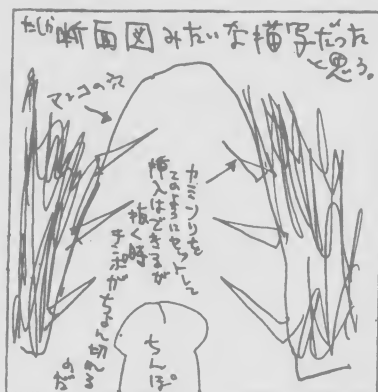 たしか断面図みたいな描写だった
と思う。
マンコの穴
カミソリを
このようにセットして
挿入はできるが
抜く時
チンポがちょん切れる
のだ
ちんぽ。